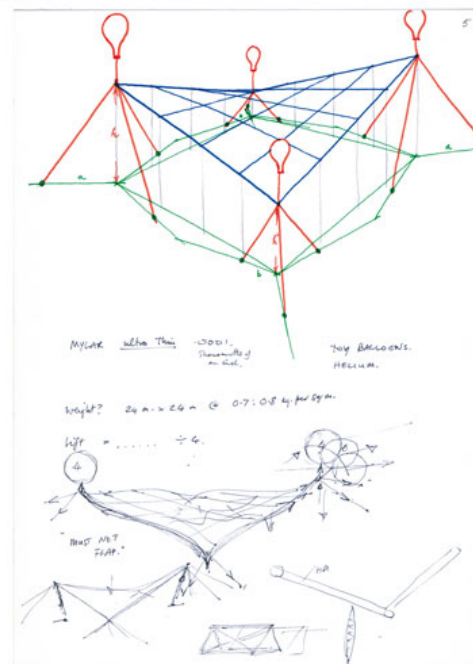 5
h
a
a
h
b
MYLAR ultra Thin -.0001.
Thousandths of
an inch.
TOY BALLOONS.
HELIUM.
Weight? 24 m. x 24 m @ 0.7 : 0.8 kg. per sq m.
Lift = ...... ÷ 4.
4
4
"MUST NOT
FLAP."